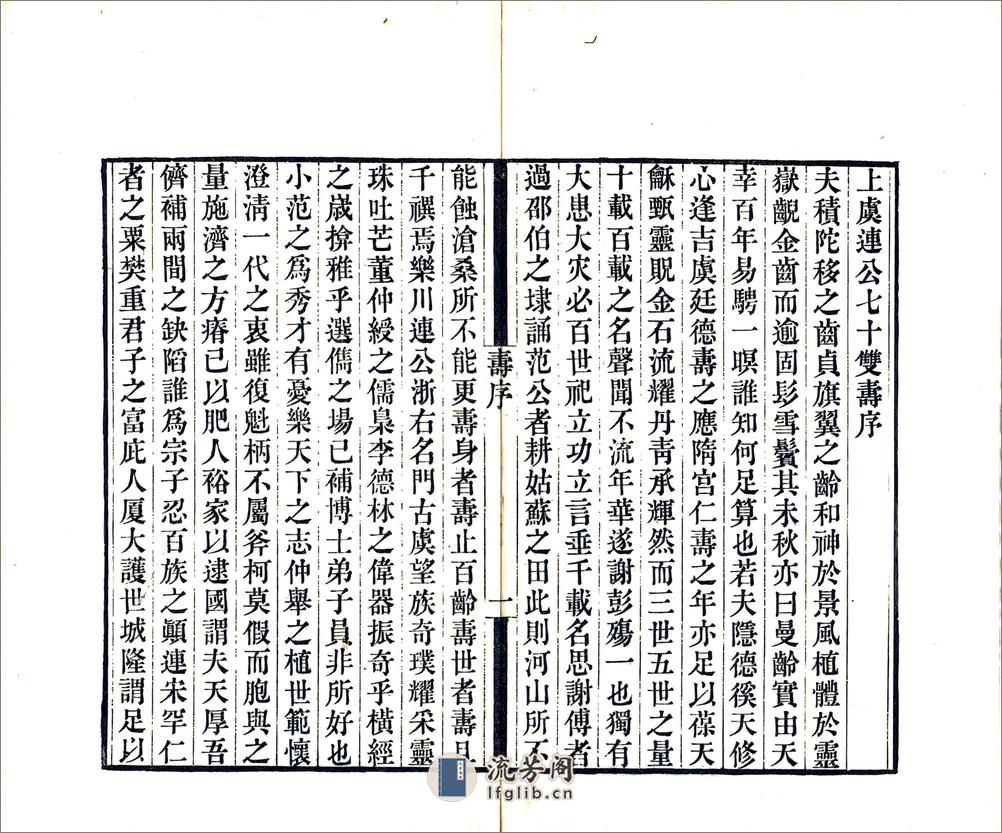 上虞連公七十雙壽序
夫積陀移之齒貞旗翼之齡和神於景風植體於靈
嶽齯金齒而逾固髟雪鬢其未秋亦曰曼齡實由天
幸百年易騁一瞑誰知何足算也若夫隱德徯天修
心逢吉虞廷德壽之應隋宮仁壽之年亦足以葆天
龢甄靈貺金石流耀丹靑承輝然而三世五世之量
十載百載之名聲聞不流年華遂謝彭殤一也獨有
大患大灾必百世祀立功立言垂千載名思謝傅者
過邵伯之埭誦范公者耕姑蘇之田此則河山所不
壽序
一
能蝕滄桑所不能更壽身者壽止百齡壽世者壽且
千禩焉樂川連公浙右名門古虞望族奇璞耀采靈
珠吐芒董仲綬之儒梟李德林之偉器振奇乎橫經
之歲揜雅乎選儁之場已補博士弟子員非所好也
小范之爲秀才有憂樂天下之志仲舉之植世範懷
澄淸一代之衷雖復魁柄不屬斧柯莫假而胞與之
量施濟之方瘠已以肥人裕家以逮國謂夫天厚吾
儕補兩間之缺陷誰爲宗子忍百族之顚連宋罕仁
者之粟樊重君子之富庇人厦大護世城隆謂足以
流芳阁
lfglib.cn